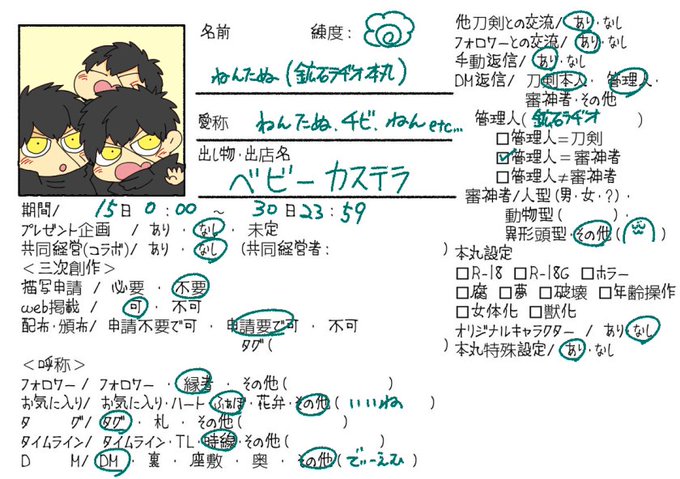 名前
練度:
ねんたぬ(鉱石ラヂオ本丸)
愛称
ねんたぬ、チビ、ねん etc...
出し物・出店名
ベビーカステラ
期間/ 15日 0:00 ~ 30日 23:59
プレゼント企画 / あり・なし・未定
共同経営(コラボ)/ あり・なし (共同経営者: )
<三次創作>
描写申請 / 必要 ・ 不要
web掲載 / 可 ・ 不可
配布・頒布/ 申請不要で可 ・ 申請要で可 ・ 不可
タグ( )
<呼称>
フォロワー/ フォロワー ・ 縁者 ・ その他( )
お気に入り/ お気に入り・ハート・ふぁぼ・花弁・その他( いいね )
タ グ/ タグ・札・その他( )
タイムライン/ タイムライン・TL・時線・その他( )
D M/ DM ・ 裏 ・ 座敷 ・ 奥 ・ その他(でぃーえむ)
他刀剣との交流/ あり・なし
フォロワーとの交流/ あり・なし
手動返信/ あり・なし
DM返信/ 刀剣本人・管理人・
審神者・その他
管理人( 鉱石ラヂオ )
□管理人=刀剣
☑管理人=審神者
□管理人≠審神者
審神者/人型(男・女・?)・
動物型( )・
異形頭型・その他( )
本丸設定
□R-18 □R-18G □ホラー
□腐 □夢 □破壊 □年齢操作
□女体化 □獣化
オリジナルキャラクター / あり・なし
本丸特殊設定/ あり・なし